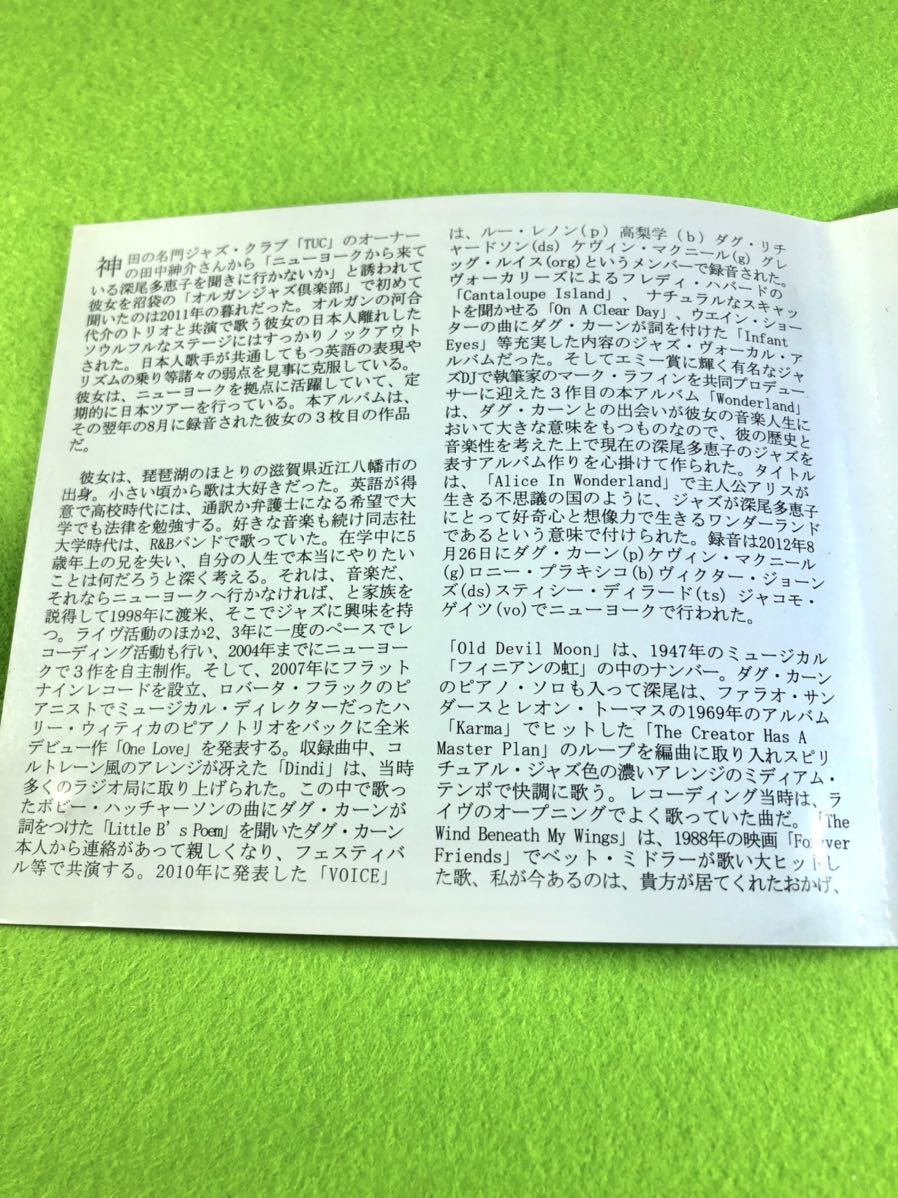 神田の名門ジャズ・クラブ「TUC」のオーナー
の田中紳介さんから「ニューヨークから来て
いる深尾多恵子を聞きに行かないか」と誘われて
彼女を沼袋の「オルガンジャズ倶楽部」で初めて
聞いたのは2011年の暮れだった。オルガンの河合
代介のトリオと共演で歌う彼女の日本人離れした
ソウルフルなステージにはすっかりノックアウト
された。日本人歌手が共通してもつ英語の表現や
リズムの乗り等諸々の弱点を見事に克服している。
彼女は、ニューヨークを拠点に活躍していて、定
期的に日本ツアーを行っている。本アルバムは、
その翌年の8月に録音された彼女の３枚目の作品
だ。
彼女は、琵琶湖のほとりの滋賀県近江八幡市の
出身。小さい頃から歌は大好きだった。英語が得
意で高校時代には、通訳か弁護士になる希望で大
学でも法律を勉強する。好きな音楽も続け同志社
大学時代は、R&Bバンドで歌っていた。在学中に5
歳年上の兄を失い、自分の人生で本当にやりたい
ことは何だろうと深く考える。それは、音楽だ、
それならニューヨークへ行かなければ、と家族を
説得して1998年に渡米、そこでジャズに興味を持
つ。ライヴ活動のほか2、3年に一度のペースでレ
コーディング活動も行い、2004年までにニューヨー
クで３作を自主制作。そして、2007年にフラット
ナインレコードを設立、ロバータ・フラックのピ
アニストでミュージカル・ディレクターだったハ
リー・ウィティカのピアノトリオをバックに全米
デビュー作「One Love」を発表する。収録曲中、コ
ルトレーン風のアレンジが冴えた「Dindi」は、当時
多くのラジオ局に取り上げられた。この中で歌っ
たボビー・ハッチャーソンの曲にダグ・カーンが
詞をつけた「Little B's Poem」を聞いたダグ・カーン
本人から連絡があって親しくなり、フェスティバ
ル等で共演する。2010年に発表した「VOICE」
は、ルー・レノン(p) 高梨学 (b) ダグ・リチ
ャードソン(ds) ケヴィン・マクニール(g) グレ
ッグ・ルイス(org)というメンバーで録音された。
ヴォーカリーズによるフレディ・ハバードの
「Cantaloupe Island」、ナチュラルなスキャッ
トを聞かせる「On A Clear Day」、ウエイン・ショー
ターの曲にダグ・カーンが詞を付けた「Infant
Eyes」等充実した内容のジャズ・ヴォーカル・ア
ルバムだった。そしてエミー賞に輝く有名なジャ
ズDJで執筆家のマーク・ラフィンを共同プロデュー
サーに迎えた３作目の本アルバム「Wonderland」
は、ダグ・カーンとの出会いが彼女の音楽人生に
おいて大きな意味をもつものなので、彼の歴史と
音楽性を考えた上で現在の深尾多恵子のジャズを
表すアルバム作りを心掛けて作られた。タイトル
は、「Alice In Wonderland」で主人公アリスが
生きる不思議の国のように、ジャズが深尾多恵子
にとって好奇心と想像力で生きるワンダーランド
であるという意味で付けられた。録音は2012年8
月26日にダグ・カーン(p)ケヴィン・マクニール
(g)ロニー・プラキシコ(b)ヴィクター・ジョーン
ズ(ds)スティシー・ディラード(ts) ジャコモ・
ゲイツ(vo)でニューヨークで行われた。
「Old Devil Moon」は、1947年のミュージカル
「フィニアンの虹」の中のナンバー。ダグ・カーン
のピアノ・ソロも入って深尾は、ファラオ・サン
ダースとレオン・トーマスの1969年のアルバム
「Karma」でヒットした「The Creator Has A
Master Plan」のループを編曲に取り入れスピリ
チュアル・ジャズ色の濃いアレンジのミディアム・
テンポで快調に歌う。レコーディング当時は、ラ
イヴのオープニングでよく歌っていた曲だ。「The
Wind Beneath My Wings」は、1988年の映画「Forever
Friends」でベット・ミドラーが歌い大ヒットし
た歌、私が今あるのは、貴方が居てくれたおかげ、